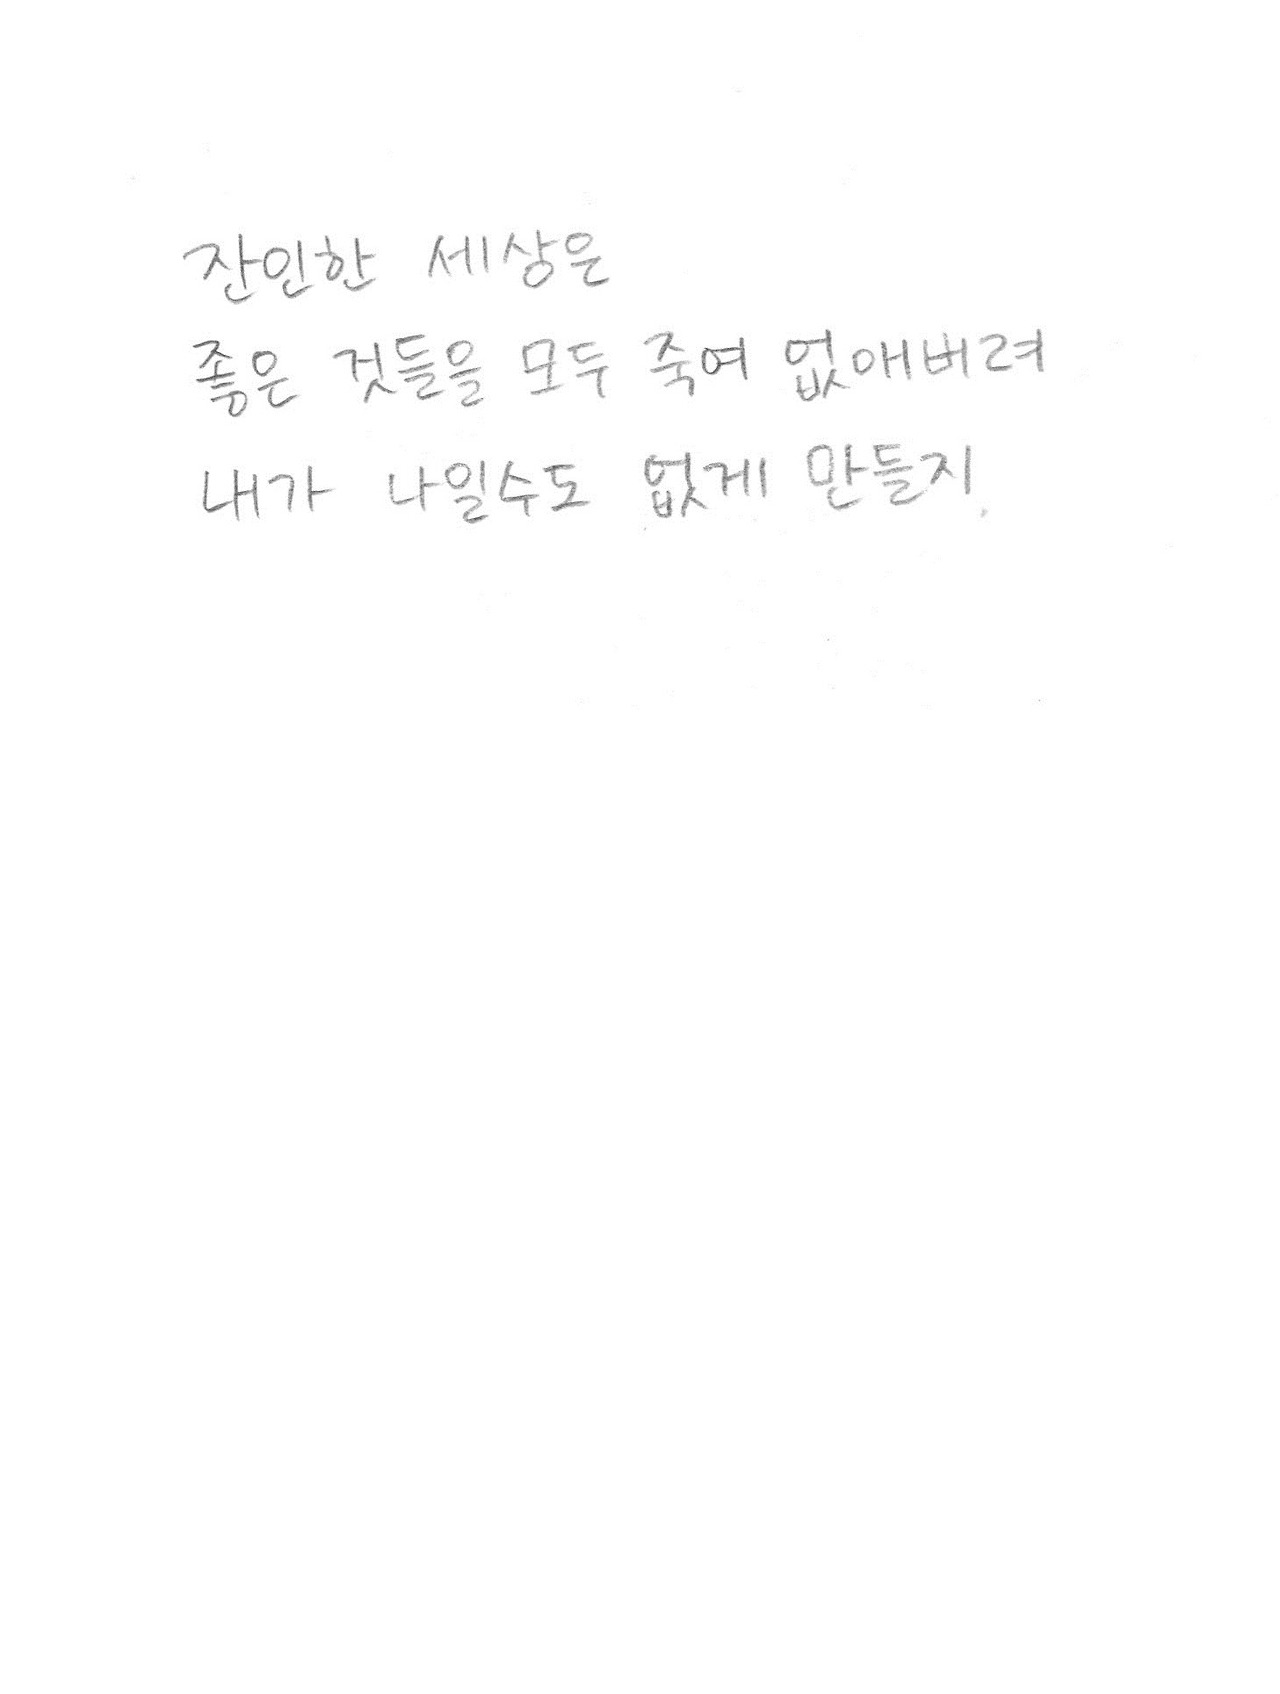 잔인한 세상은
좋은 것들을 모두 죽여 없애버려
내가 나일수도 없게 만들지.